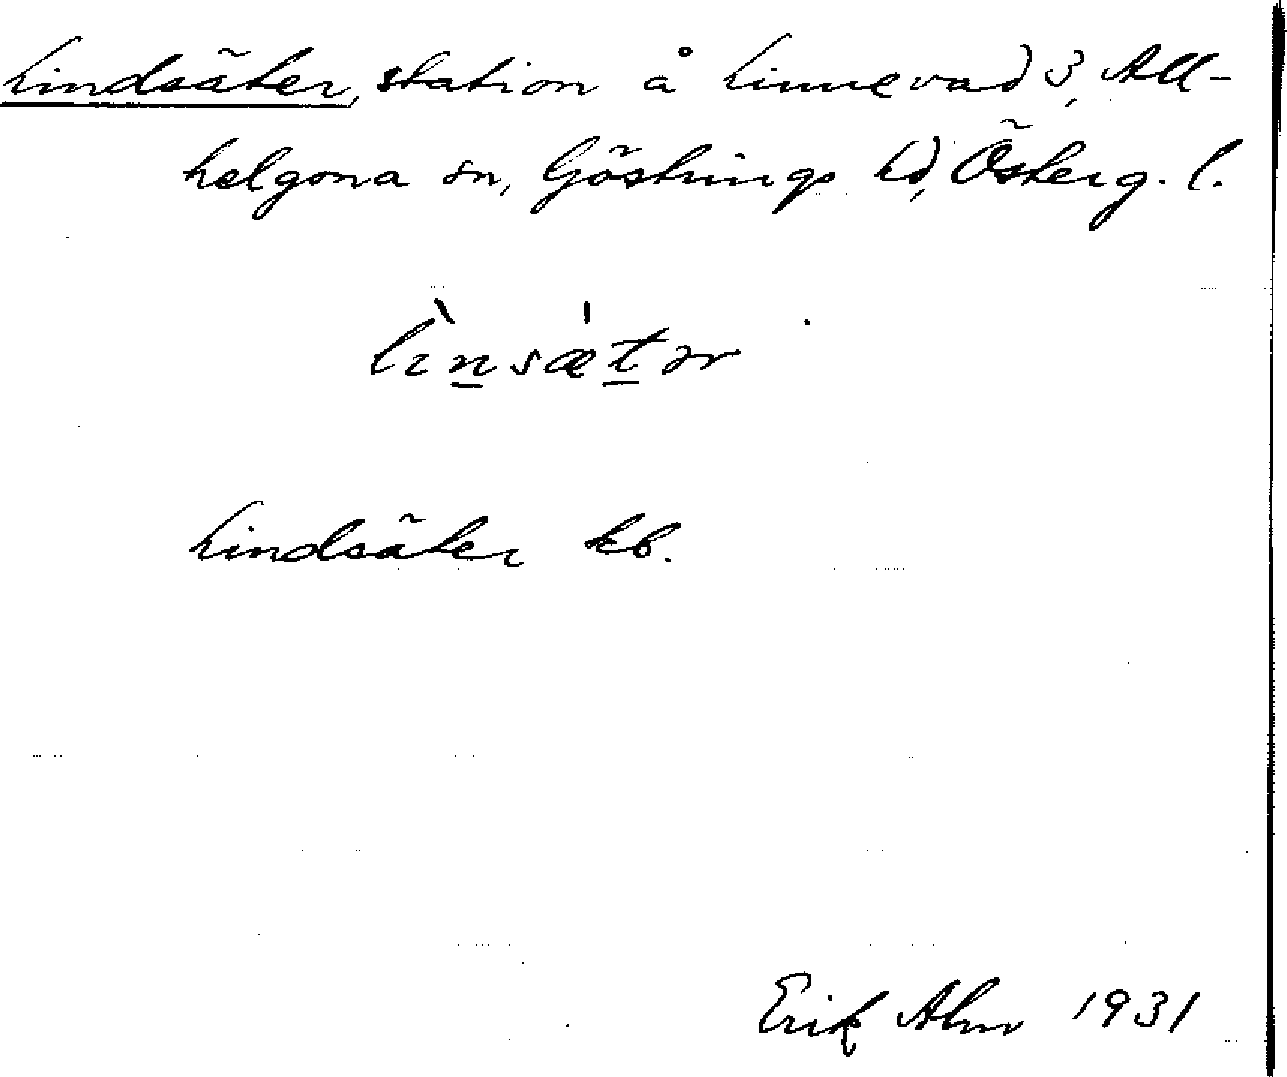 Lindsäter, station å Linnevad 3, All-
helgona sn, Göstrings hd, Österg. l.
lìnsæ̍tər
Lindsäter kb.
Erik Alm 1931